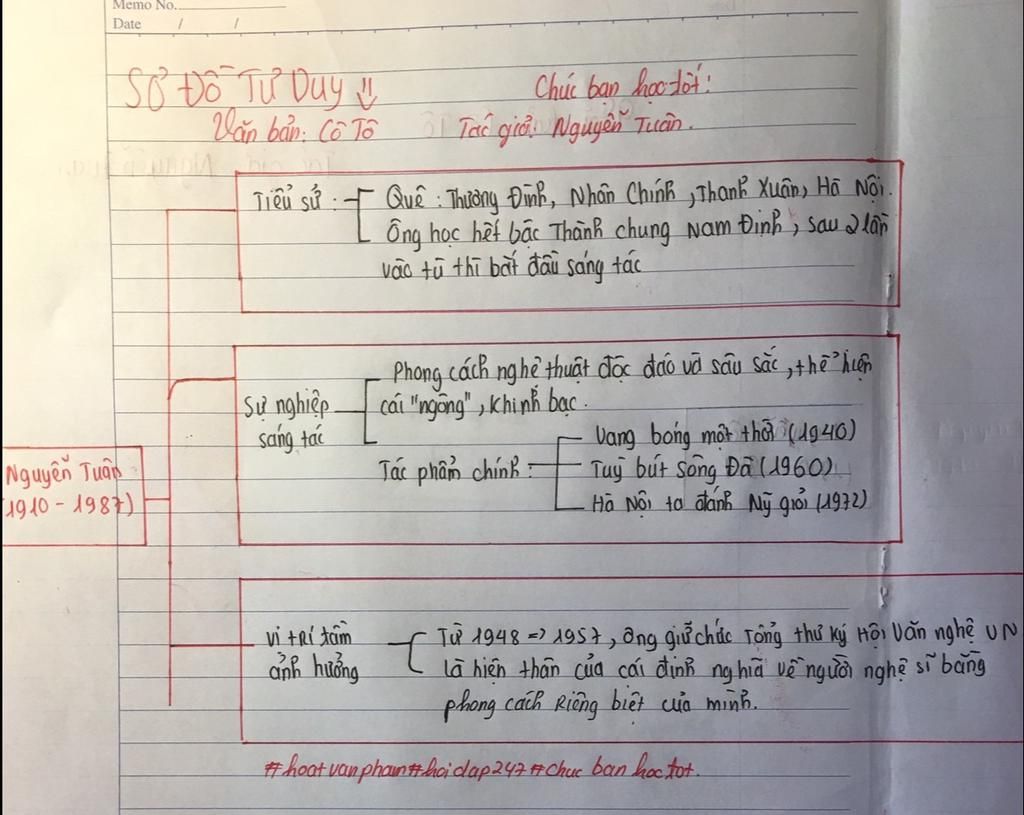 Memo No.
Date / /
Sơ Đồ Tư Duy ⇓ Chúc bạn học tốt!
Văn bản: Cô Tô Tác giả: Nguyễn Tuân.
Tiểu sử : Quê : Thượng Đình, Nhân Chính, Thanh Xuân, Hà Nội.
Ông học hết bậc Thành chung Nam Định, sau 2 lần
vào tù thì bắt đầu sáng tác
Phong cách nghệ thuật độc đáo và sâu sắc, thể hiện
Sự nghiệp cái "ngông", khinh bạc.
sáng tác
Vang bóng một thời (1940)
Tác phẩm chính : Tuỳ bút Sông Đà (1960)
Hà Nội ta đánh Mỹ giỏi (1972)
Nguyễn Tuân
(1910 - 1987)
Vị trí tầm Từ 1948 => 1957, ông giữ chức Tổng thư ký Hội Văn nghệ VN
ảnh hưởng là hiện thân của cái định nghĩa về người nghệ sĩ bằng
phong cách Riêng biệt của mình.
#hoatvanpham#hoidap247#chuc ban hoc tot.